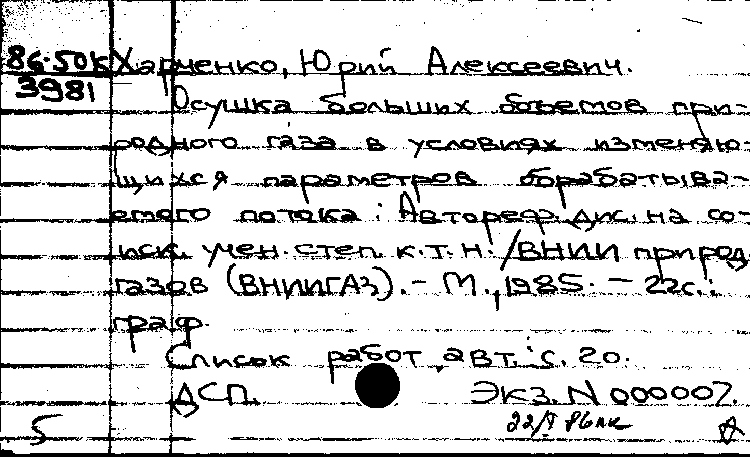 86-50К Харченко, Юрий Алексеевич.
3981
Осушка больших объемов при-
родного газа в условиях изменяю-
щихся параметров обрабатыва-
емого потока : Автореф. дис. на со-
иск. учен. степ. к.т.н. /ВНИИ природ.
газов (ВНИИГАЗ). - М., 1985. - 22с.:
граф.
Список работ авт.: с. 20.
ДСП. Экз. N 000007.
5